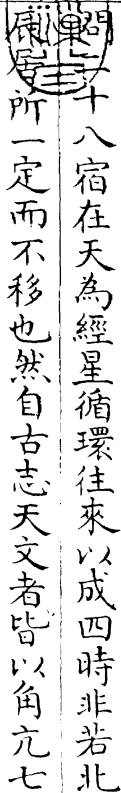 問二十八宿在天為經星循環往來以成四時非若北
辰居所一定而不移也然自古志天文者皆以角亢七